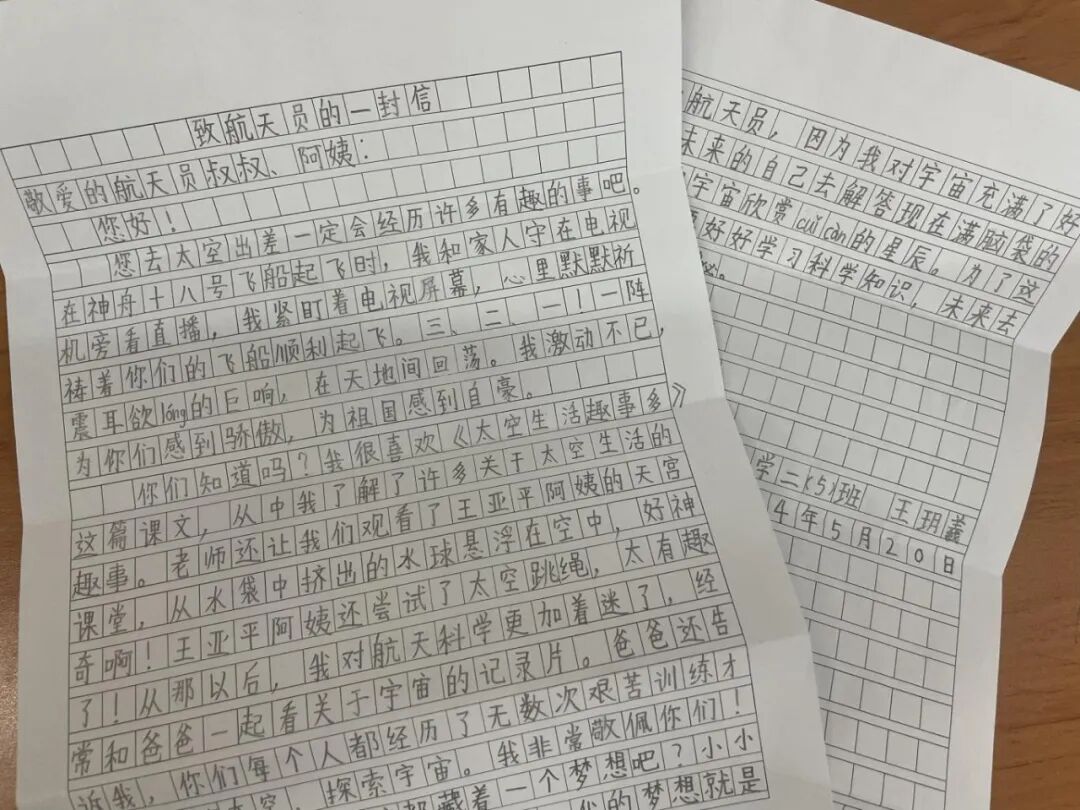 致航天员的一封信
敬爱的航天员叔叔、阿姨：
您好！
您去太空出差一定会经历许多有趣的事吧。
在神舟十八号飞船起飞时，我和家人守在电视
机旁看直播，我紧盯着电视屏幕，心里默默祈
祷着你们的飞船顺利起飞。三、二、一！一阵
震耳欲lóng的巨响，在天地间回荡。我激动不已，
为你们感到骄傲，为祖国感到自豪。
你们知道吗？我很喜欢《太空生活趣事多》
这篇课文，从中我了解了许多关于太空生活的
趣事。老师还让我们观看了王亚平阿姨的天宫
课堂，从水袋中挤出的水球悬浮在空中，好神
奇啊！王亚平阿姨还尝试了太空跳绳，太有趣
了！从那以后，我对航天科学更加着迷了，经
常和爸爸一起看关于宇宙的记录片。爸爸还告
诉我，你们每个人都经历了无数次艰苦训练才
太空，探索宇宙。我非常敬佩你们！
都藏着一个梦想吧？小小
的梦想就是
航天员，因为我对宇宙充满了好
未来的自己去解答现在满脑袋的
宇宙欣赏cuǐ càn的星辰。为了这
要好好学习科学知识，未来去
学二(5)班 王玥
4年5月20日